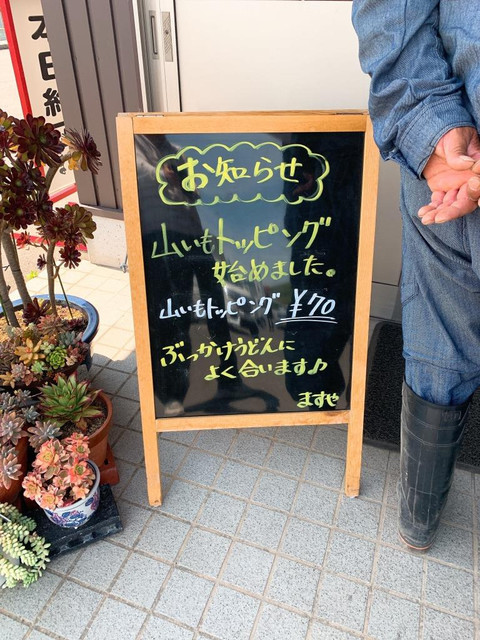 本日
お知らせ
山いもトッピング
始めました。
山いもトッピング ¥70
ぶっかけうどんに
よく合います♪
ますや